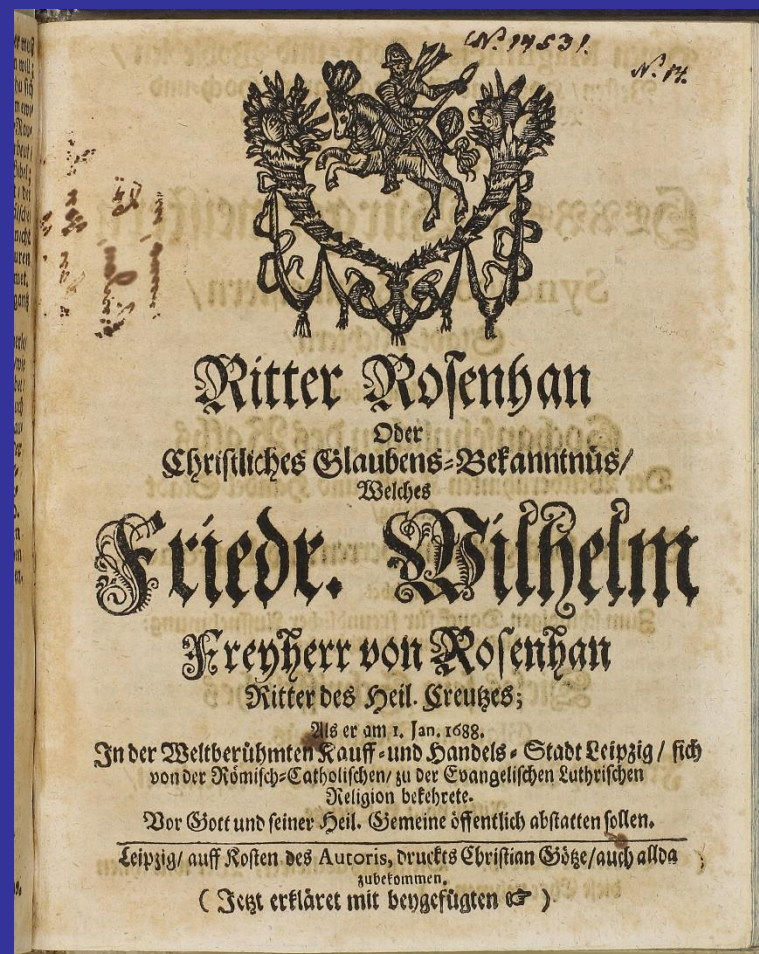 N.º 14531.
N.º 14.
Ritter Rosenhan
Oder
Christliches Glaubens-Bekanntnüs/
Welches
Friedr. Wilhelm
Freyherr von Rosenhan
Ritter des Heil. Creutzes;
Als er am 1. Jan. 1688.
In der Weltberühmten Kauff-und Handels-Stadt Leipzig/ sich
von der Römisch-Catholischen/ zu der Evangelischen Luthrischen
Religion bekehrete.
Vor Gott und seiner Heil. Gemeine öffentlich abstatten sollen.
Leipzig/ auff Kosten des Autoris, druckts Christian Götze/auch allda
zubekommen.
( Jetzt erkläret mit beygefügten ☞ )